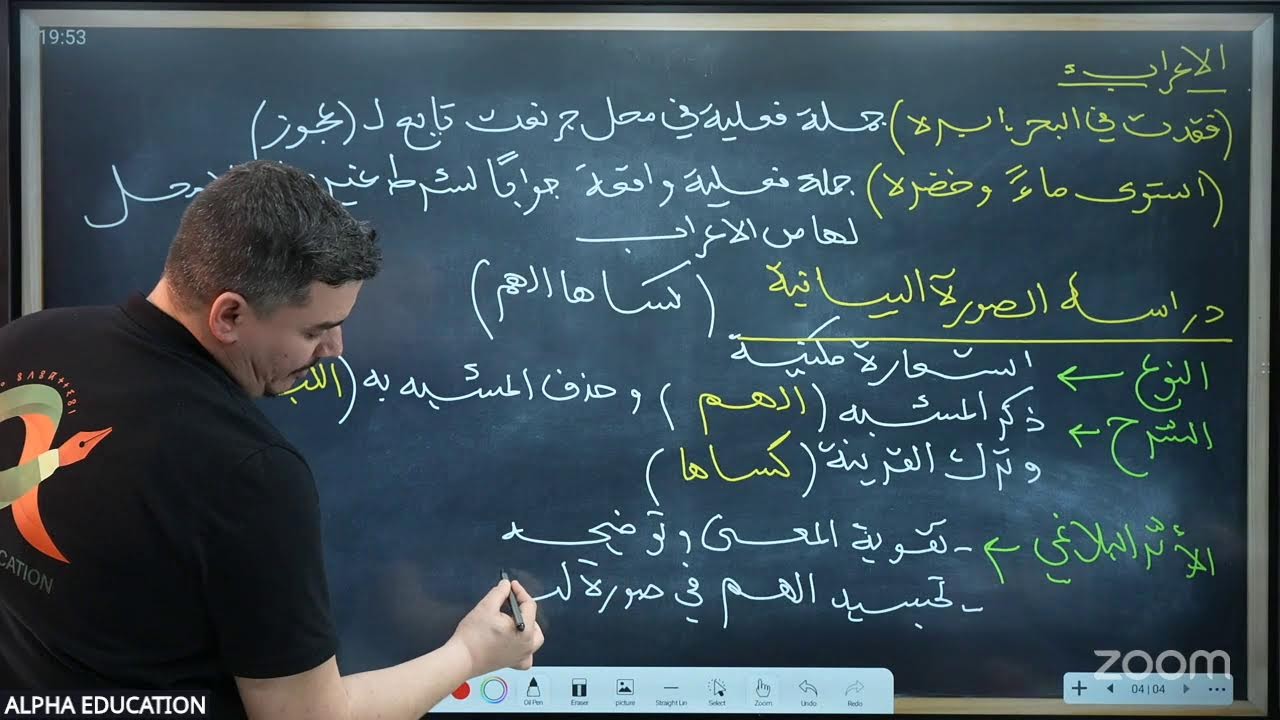 19:53
الإعراب:
(فقدت في البحر إبرة) جملة فعلية في محل جر نعت تابع لـ (عجوز)
(استوى ماءً وخضرة) جملة فعلية واقعة جوابًا لشرط غير محل
لها من الإعراب
دراسة الصورة البيانية (كساها الهم)
النوع ← استعارة مكنية
الشرح ← ذكر المشبه (الهم) وحذف المشبه به
وترك القرينة (كساها)
الأثر البلاغي ← - تقوية المعنى وتوضيحه
- تجسيد الهم في صورة
CATION
ALPHA EDUCATION
Oil Pen Eraser picture Straight Lin Select Zoom Undo Redo
04|04
zoom